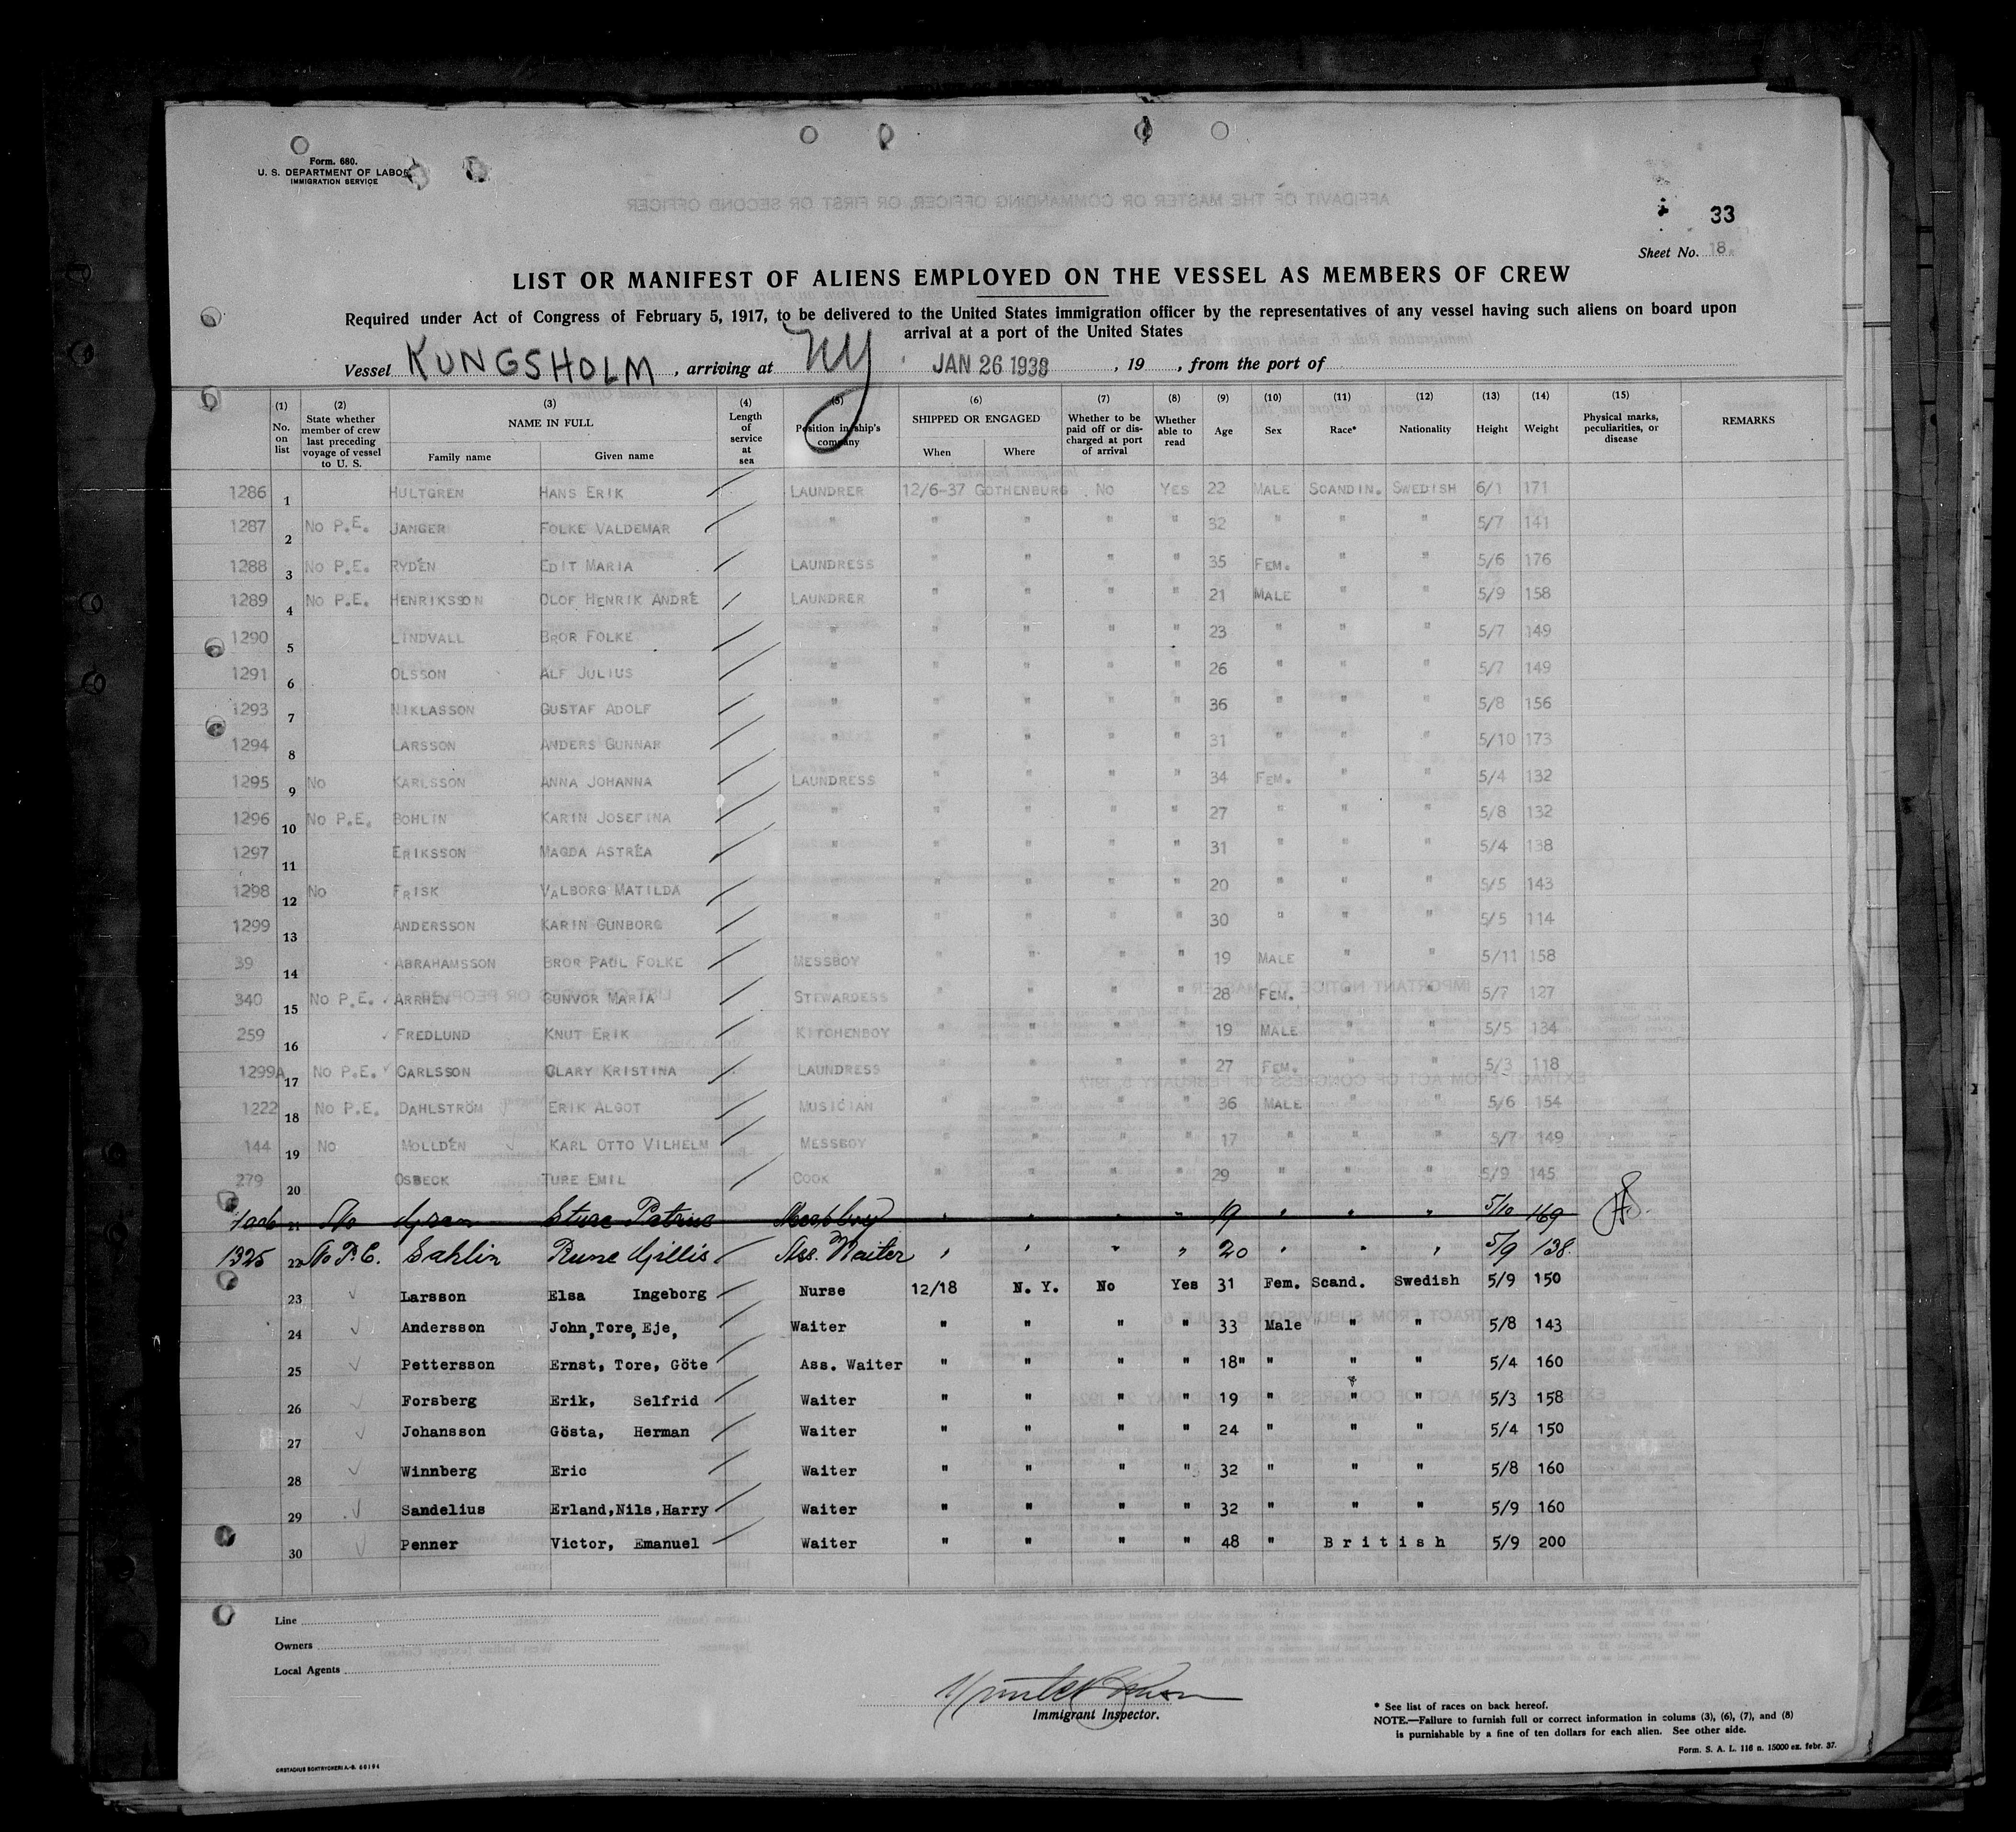 Form. 680.
U. S. DEPARTMENT OF LABOR
IMMIGRATION SERVICE
33
Sheet No. 18.
LIST OR MANIFEST OF ALIENS EMPLOYED ON THE VESSEL AS MEMBERS OF CREW
Required under Act of Congress of February 5, 1917, to be delivered to the United States immigration officer by the representatives of any vessel having such aliens on board upon
arrival at a port of the United States
Vessel KUNGSHOLM, arriving at NY JAN 26 1938, 19 , from the port of
(1) No. on list (2) State whether member of crew last preceding voyage of vessel to U. S. (3) NAME IN FULL Family name Given name (4) Length of service at sea (5) Position in ship's company (6) SHIPPED OR ENGAGED When Where (7) Whether to be paid off or discharged at port of arrival (8) Whether able to read (9) Age (10) Sex (11) Race* (12) Nationality (13) Height (14) Weight (15) Physical marks, peculiarities, or disease REMARKS
1286 1 HULTGREN HANS ERIK LAUNDRER 12/6-37 GOTHENBURG NO YES 22 MALE SCANDIN. SWEDISH 6/1 171
1287 2 NO P.E. JANGER FOLKE VALDEMAR " " " " " 32 " " " 5/7 141
1288 3 NO P.E. RYDÉN EDIT MARIA LAUNDRESS " " " " 35 FEM. " " 5/6 176
1289 4 NO P.E. HENRIKSSON OLOF HENRIK ANDRÉ LAUNDRER " " " " 21 MALE " " 5/9 158
1290 5 LINDVALL BROR FOLKE " " " " " 23 " " " 5/7 149
1291 6 OLSSON ALF JULIUS " " " " " 26 " " " 5/7 149
1293 7 NIKLASSON GUSTAF ADOLF " " " " " 36 " " " 5/8 156
1294 8 LARSSON ANDERS GUNNAR " " " " " 31 " " " 5/10 173
1295 9 NO KARLSSON ANNA JOHANNA LAUNDRESS " " " " 34 FEM. " " 5/4 132
1296 10 NO P.E. BOHLIN KARIN JOSEFINA " " " " " 27 " " " 5/8 132
1297 11 ERIKSSON MAGDA ASTRÉA " " " " " 31 " " " 5/4 138
1298 12 NO FRISK VALBORG MATILDA " " " " " 20 " " " 5/5 143
1299 13 ANDERSSON KARIN GUNBORG " " " " " 30 " " " 5/5 114
39 14 ABRAHAMSSON BROR PAUL FOLKE MESSBOY " " " " 19 MALE " " 5/11 158
340 15 NO P.E. ARRHÉN GUNVOR MARIA STEWARDESS " " " " 28 FEM. " " 5/7 127
259 16 FREDLUND KNUT ERIK KITCHENBOY " " " " 19 MALE " " 5/5 134
1299A 17 NO P.E. CARLSSON CLARY KRISTINA LAUNDRESS " " " " 27 FEM. " " 5/3 118
1222 18 NO P.E. DAHLSTRÖM ERIK ALGOT MUSICIAN " " " " 36 MALE " " 5/6 154
144 19 NO MOLLDÉN KARL OTTO VILHELM MESSBOY " " " " 17 " " " 5/7 149
279 20 OSBECK TURE EMIL COOK " " " " 29 " " " 5/9 145
21 No Sture Messboy " " " " 19 " " " 5/10 169
1325 22 No P.E. Sahlin Rune Gillis Ass. Waiter " " " " 20 " " " 5/9 138.
23 Larsson Elsa Ingeborg Nurse 12/18 N. Y. No Yes 31 Fem. Scand. Swedish 5/9 150
24 Andersson John,Tore,Eje, Waiter " " " " 33 Male " " 5/8 143
25 Pettersson Ernst, Tore, Göte Ass. Waiter " " " " 18" " " " 5/4 160
26 Forsberg Erik, Selfrid Waiter " " " " 19 " " " 5/3 158
27 Johansson Gösta, Herman Waiter " " " " 24 " " " 5/4 150
28 Winnberg Eric Waiter " " " " 32 " " " 5/8 160
29 Sandelius Erland,Nils,Harry Waiter " " " " 32 " " " 5/9 160
30 Penner Victor, Emanuel Waiter " " " " 48 " British 5/9 200
Line
Owners
Local Agents
Immigrant Inspector.
* See list of races on back hereof.
NOTE.—Failure to furnish full or correct information in colums (3), (6), (7), and (8)
is punishable by a fine of ten dollars for each alien. See other side.
Form. S. A. L. 116 n. 15000 ex. febr. 37.